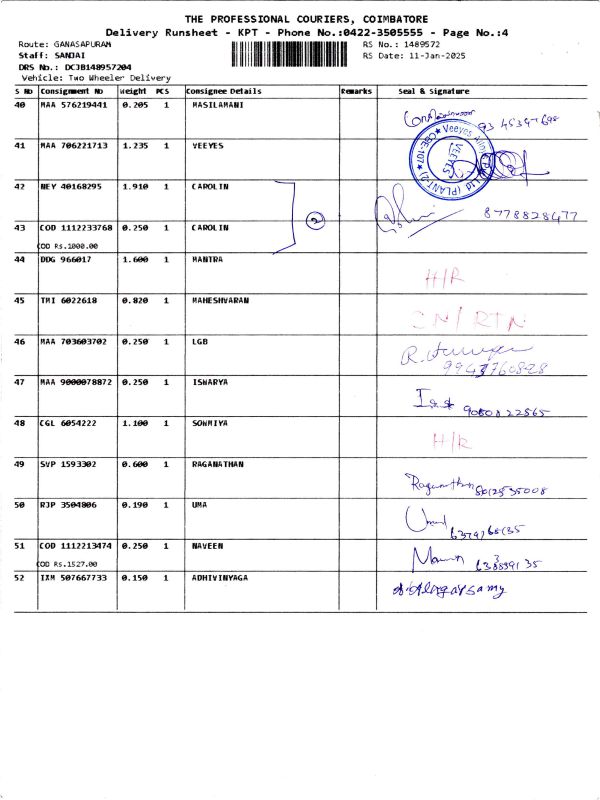 THE PROFESSIONAL COURIERS, COIMBATORE
Delivery Runsheet - KPT - Phone No.:0422-3505555 - Page No.:4
Route: GANASAPURAM
RS No.: 1489572
Staff: SANJAI
RS Date: 11-Jan-2025
DRS No.: DCJB148957204
Vehicle: Two Wheeler Delivery
S NO Consignment No Weight PCS Consignee Details Remarks Seal & Signature
40 MAA 576219441 0.205 1 MASILAMANI
41 MAA 706221713 1.235 1 VEEYES
VEEYES (PLANT-2) CBE-107
42 NEY 40168295 1.910 1 CAROLIN
2
8778828477
43 COD 1112233768 0.250 1 CAROLIN
COD RS.1000.00
44 DDG 966017 1.600 1 MANTRA H/R
45 TMI 6022618 0.820 1 MAHESHVARAN
46 MAA 703603702 0.250 1 LGB
47 MAA 9000078872 0.250 1 ISWARYA
48 CGL 6054222 1.100 1 SOWMIYA H/R
49 SVP 1593302 0.600 1 RAGANATHAN Raganathan
50 RJP 3504806 0.190 1 UMA
51 COD 1112213474 0.250 1 NAVEEN
COD RS.1527.00
52 IXM 507667733 0.150 1 ADHIVINYAGA